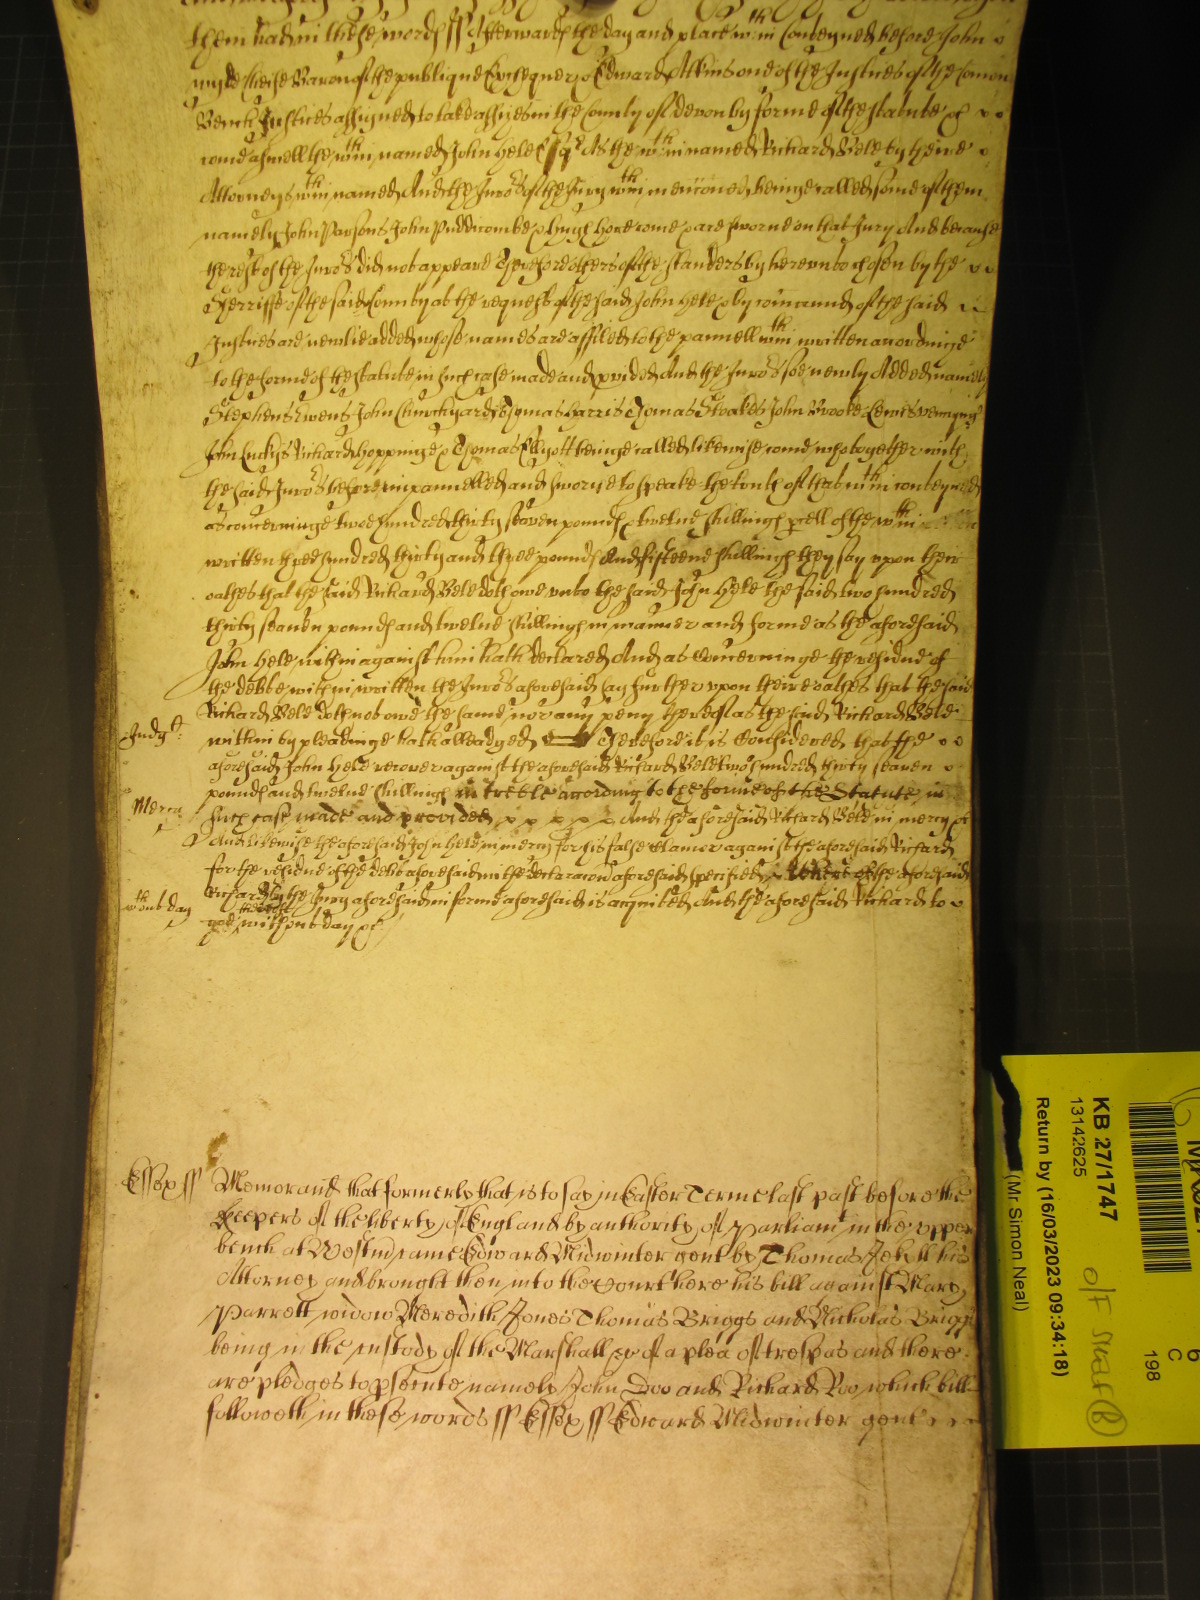 them had in these words ss Afterwards the day and place wthin Conteyned before John
wylde Cheife Baron of the publique Exchequer & Edward Atkins one of the Justices of the Comon
Bench Justices assigned to take assises in the County of devon by forme of the statute &c
come aswell the wthin named John Hele Esqr As the wthin named Richard Bele by theire
Attorneys wthin named And the Jurors of the Jury wthin menconed beinge called some of them
namely John Parsons John Puddicombe & hugh hore come & are sworne on that Jury And because
the rest of the Jurors did not appeare Therefore others of the standers by hereunto chosen by the
Sherriffe of the said County at the request of the said John Hele & by comaund of the said
Justices are newlie added whose names are affiled to the pannell wthin written accordinge
to the forme of the statute in such case made and pvided And the Jurors soe newly Added namely
Stephen Owens John Churchyard Thomas harris Thomas Stoakes John Brooke Lewis
John Luckys Richard hoppinge & Thomas Ellyott beinge called likewise come who together with
the said Jurors before impannelled and sworne to speake the truth of that wthin conteyned
as concerninge twoe hundred thirty seaven pounds & twelue shillings pcell of the wthin
written three hundred thirty and three pounds And fifteene shillings they say upon their
oathes that the said Richard Bele doth owe unto the said John Hele the said two hundred
thirty seauen pounds and twelue shillings in manner and forme as the aforesaid
John Hele within against him hath declared And as Concerninge the residue of
the debte within written the Jurors aforesaid say further upon theire oathes that the said
Richard Bele doth not owe the same nor any peny thereof as the said Richard Bele
Judgt within by pleadinge hath alleadged Therefore it is Considered that the
aforesaid John Hele recover against the aforesaid Richard Bele two hundred thirty seaven
pounds and twelue shillings in treble according to the forme of the Statute in
Mercy such case made and provided And the aforesaid Richard Bele in mercy &c
And likewise the aforesaid John Hele in mercy for his false Clamer against the aforesaid Richard
for the residue of the debte aforesaid in the declaracon aforesaid specified whereof the aforesaid
Richard by the Jury aforesaid in forme aforesaid is acquited And the aforesaid Richard to
wthout day goe thereof without day &c
Essex ss Memorand that formerly that is to say in Easter Terme last past before the
Keepers of the liberty of England by authority of Parliamt in the upper
bench at Westm came Edward Midwinter gent by Thomas Jekyll his
Attorney and brought then into the Court here his bill against Mary
Parrett widow Meredith Jones Thomas Briggs and Nicholas Briggs
being in the custody of the Marshall &c of a plea of trespas and there
are pledges to psecute namely John Doo and Richard Roo which bill
followeth in these words ss Essex ss Edward Midwinter gent
KB 27/1747
13142625
Return by (16/03/2023 09:34:18)
(Mr Simon Neal)
C
198